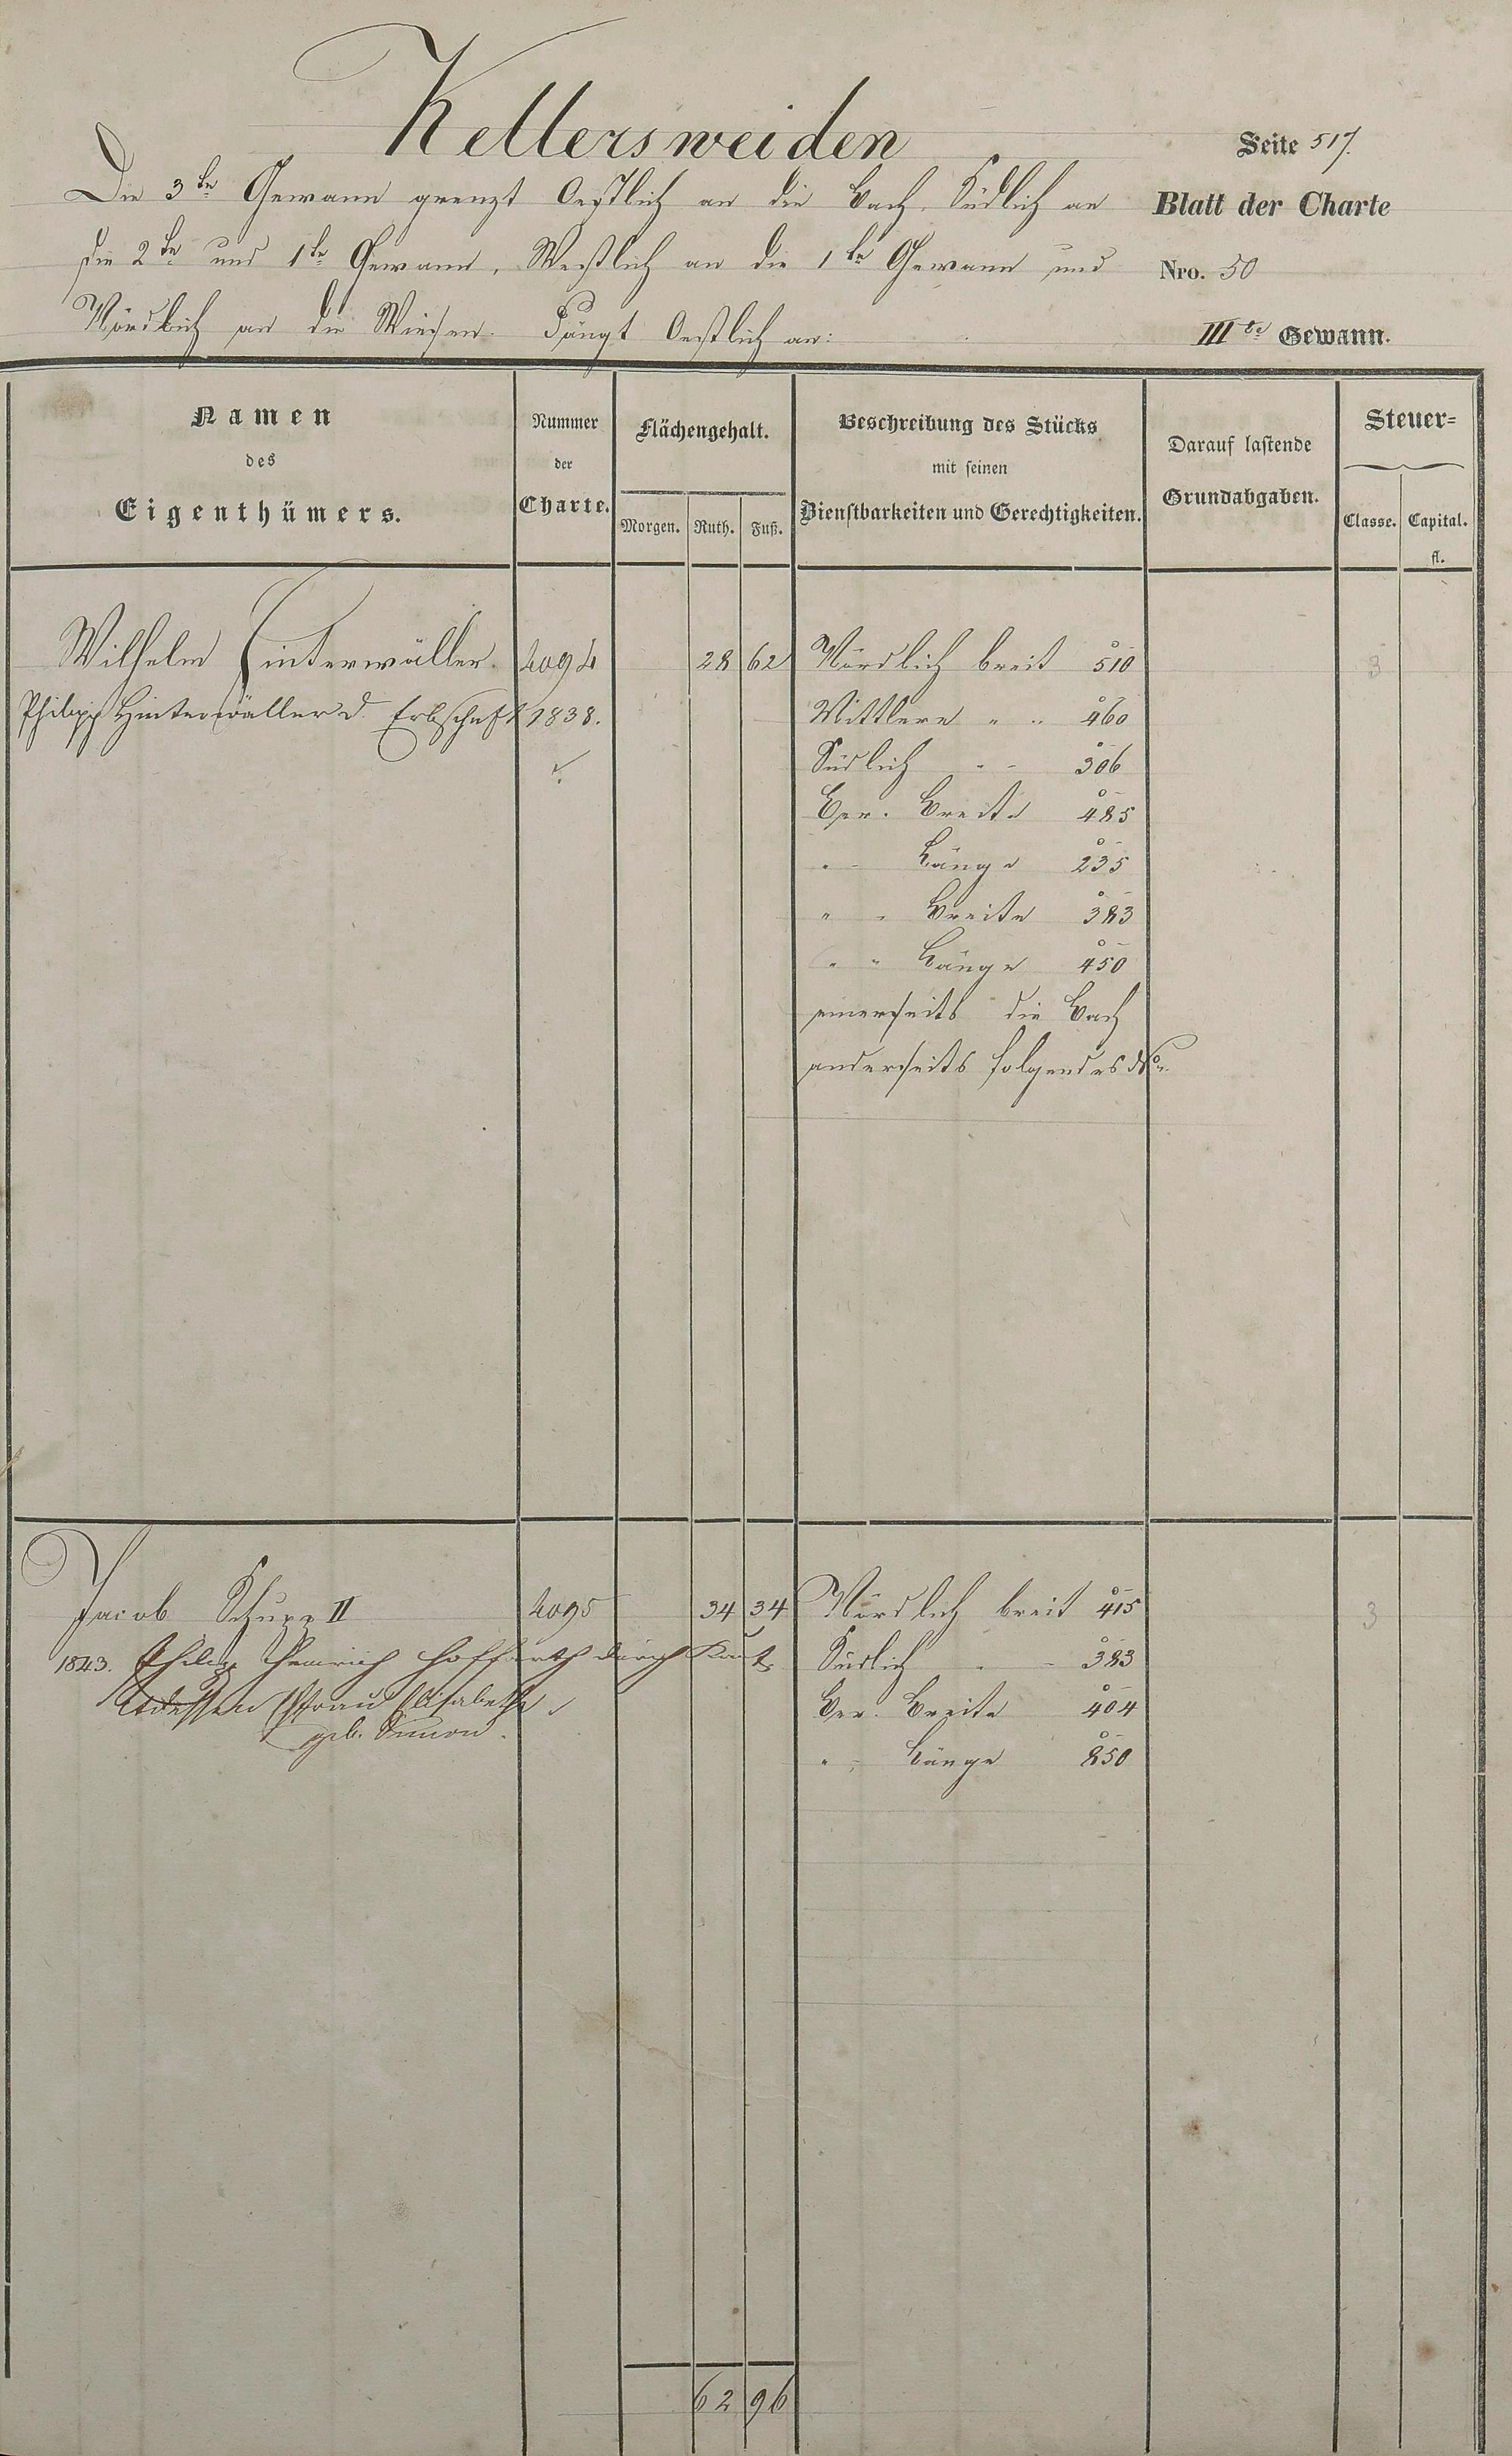 Kellersweiden
Seite 517.
Die 3te Gewann grenzt Oestlich an die Bach, Südlich an
Blatt der Charte
die 2te und 1te Gewann, Westlich an die 1te Gewann und
Nro. 50
Nördlich an die Wiesen. Fängt Oestlich an:
IIIte Gewann.
Namen
des
Eigenthümers.
Nummer
der
Charte.
Flächengehalt.
Morgen. Ruth. Fuß.
Beschreibung des Stücks
mit seinen
Dienstbarkeiten und Gerechtigkeiten.
Darauf lastende
Grundabgaben.
Steuer-
Classe. Capital.
fl.
Wilhelm Hinterwäller. 4094 28 62 Nördlich breit 510 3
Philipp Hinterwäller d. Erbschaft 1838. Mittlere " " 460
Südlich " " 306
Ber. Breite 485
" " Länge 235
" " Breite 383
" " Länge 450
einerseits die Bach
anderseits folgendes No.
Jacob Schupp II 4095 34 34 Nördlich breit 415 3
1843. Philipp Heinrich Hoffarth durch Kauf Südlich " " 383
dessen Frau Elisabetha Ber. Breite 404
geb. Simon. " " Länge 850
62 96